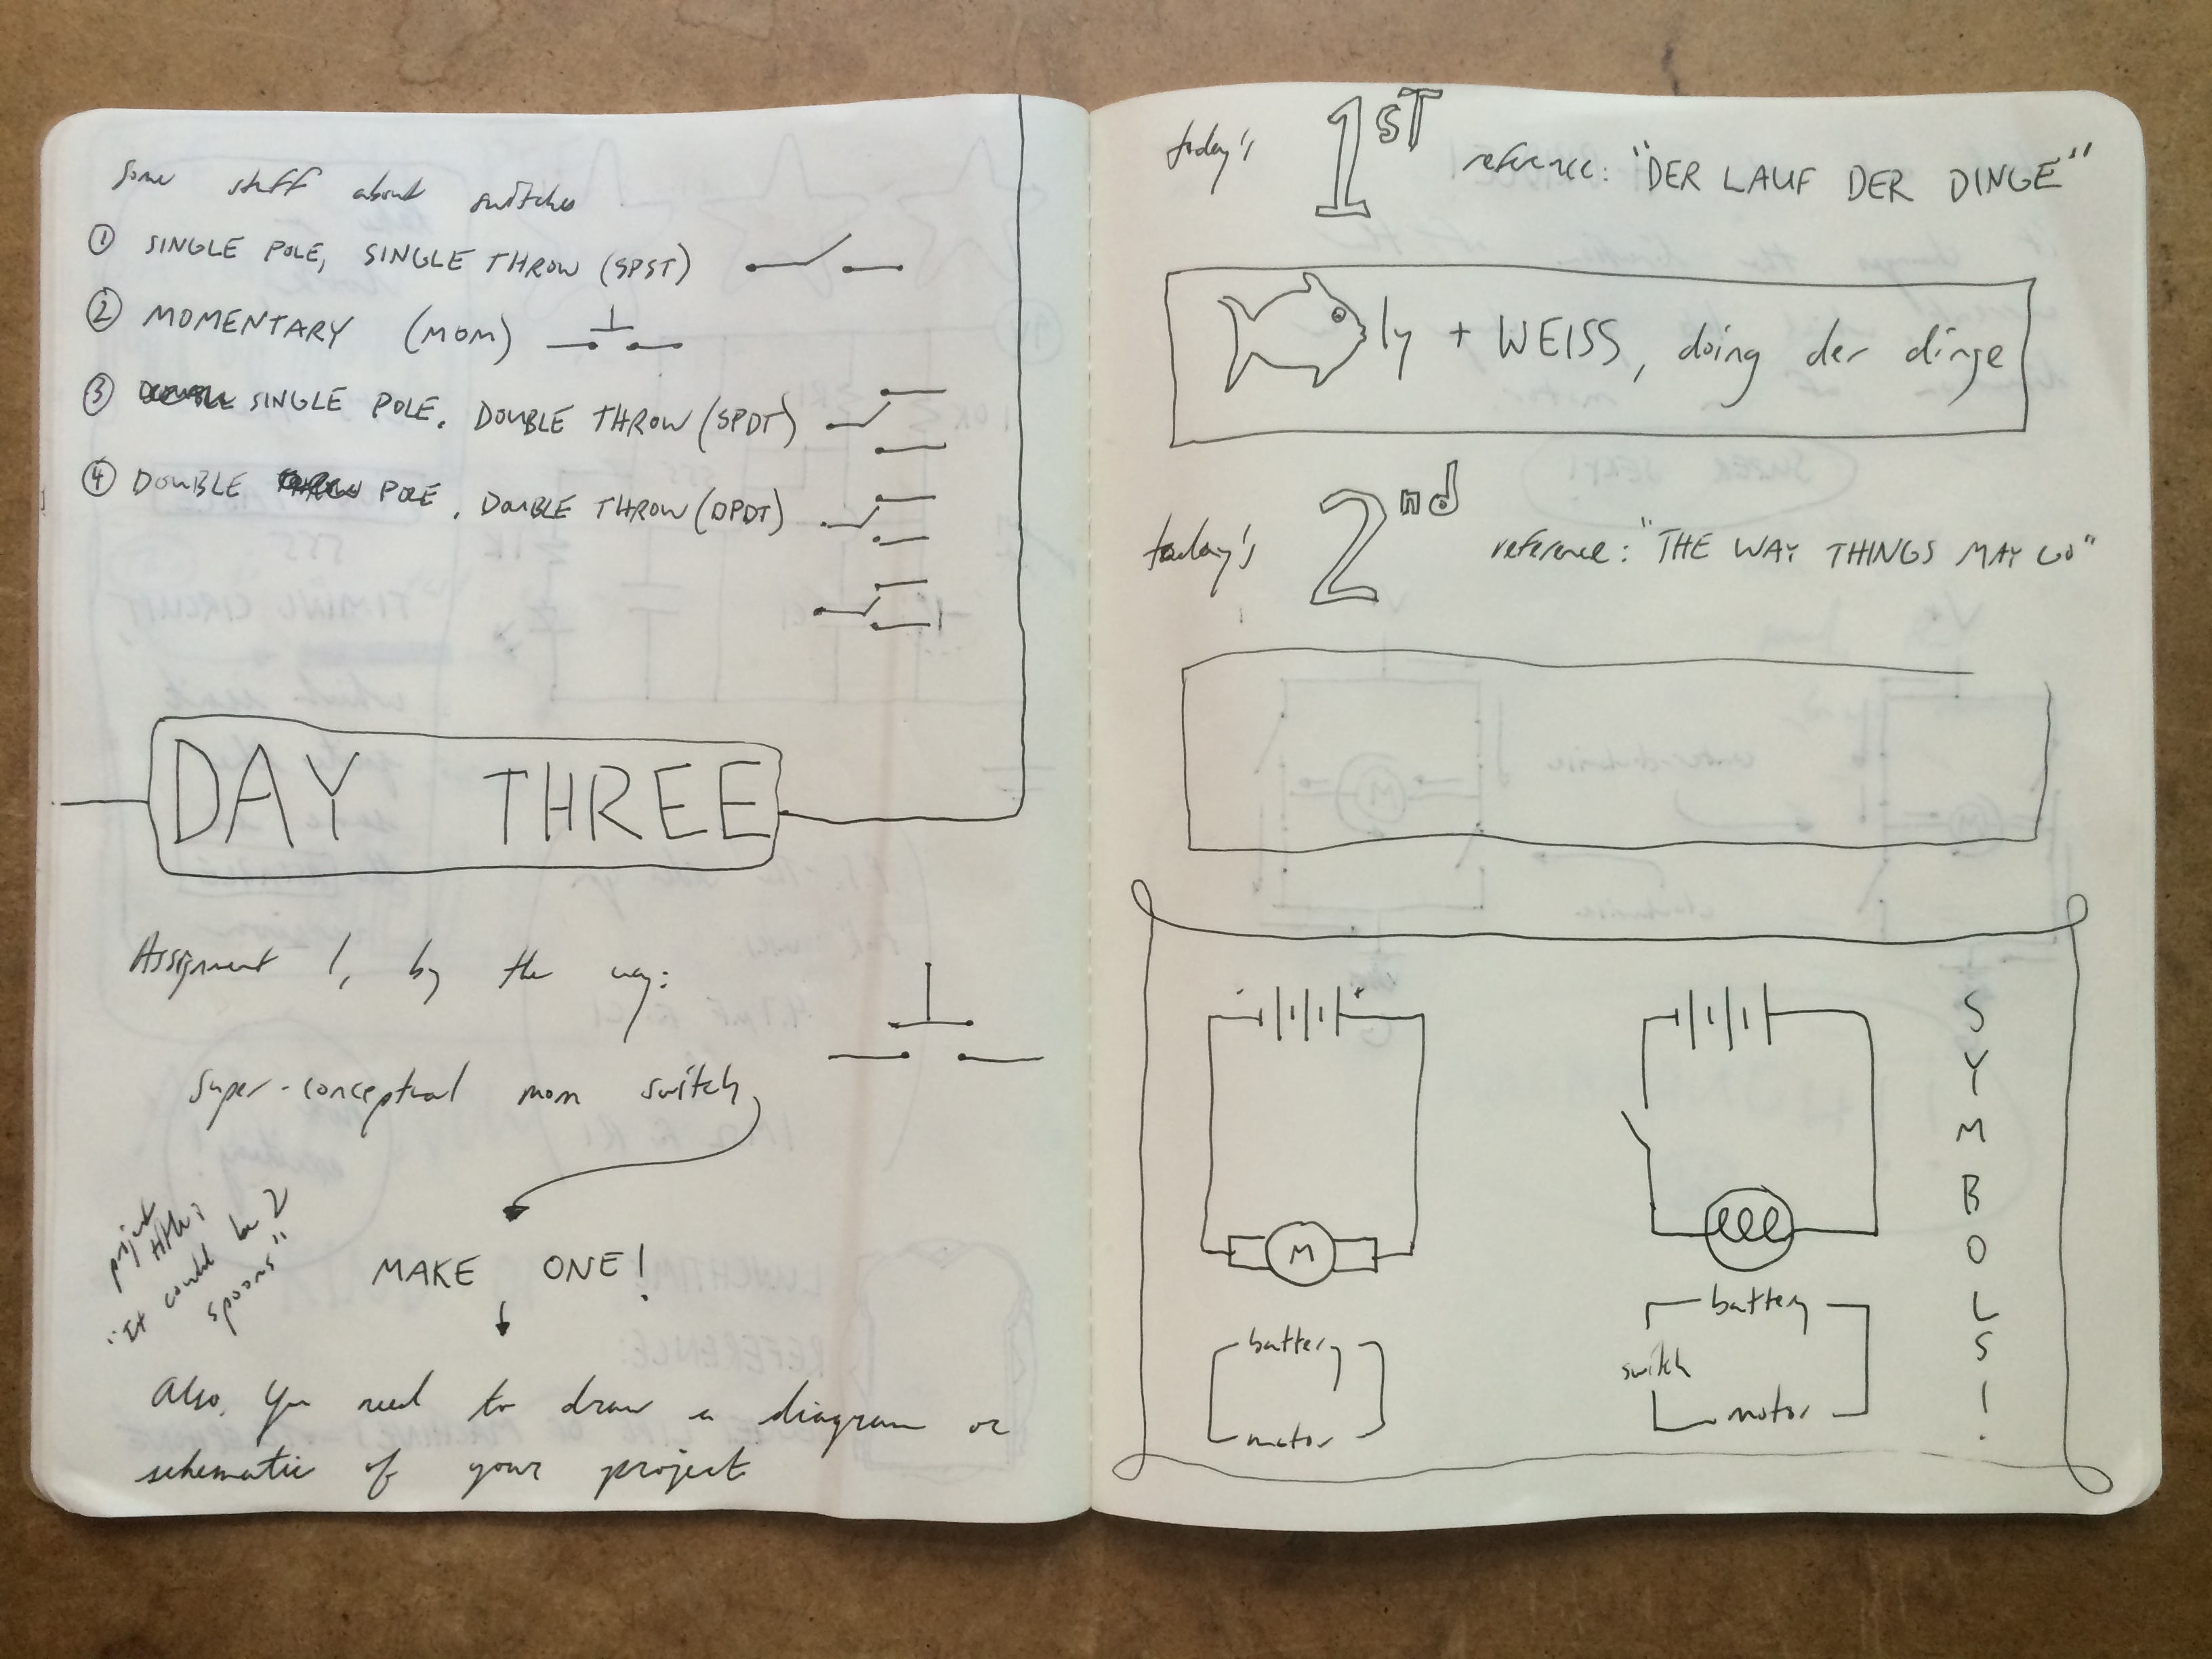 some stuff about switches
① SINGLE POLE, SINGLE THROW (SPST)
② MOMENTARY (MOM)
③ SINGLE POLE. DOUBLE THROW (SPDT)
④ DOUBLE POLE. DOUBLE THROW (DPDT)
DAY THREE
Assignment 1, by the way:
super-conceptual mom switch
MAKE ONE!
project
"It could be 2
spoons"
Also, you need to draw a diagram or
schematic of your project
today's 1ST reference: "DER LAUF DER DINGE"
ly + WEISS, doing der dinge
today's 2nd reference: "THE WAY THINGS MAY GO"
- +
M
battery
motor
battery
switch
motor
SYMBOLS!